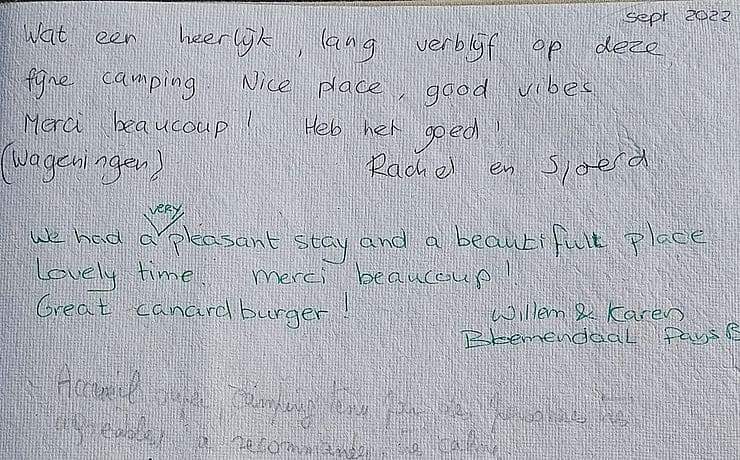 Sept 2022
Wat een heerlijk, lang verblijf op deze
fijne camping. Nice place, good vibes
Merci beaucoup! Heb het goed!
(Wageningen) Rachel en Sjoerd
VERY
We had a pleasant stay and a beautifull place
Lovely time. Merci beaucoup!
Great canardburger!
Willem & Karen
Bloemendaal Pays B
Accueil super, camping tenu par des personnes très
agréables, à recommander, le calme